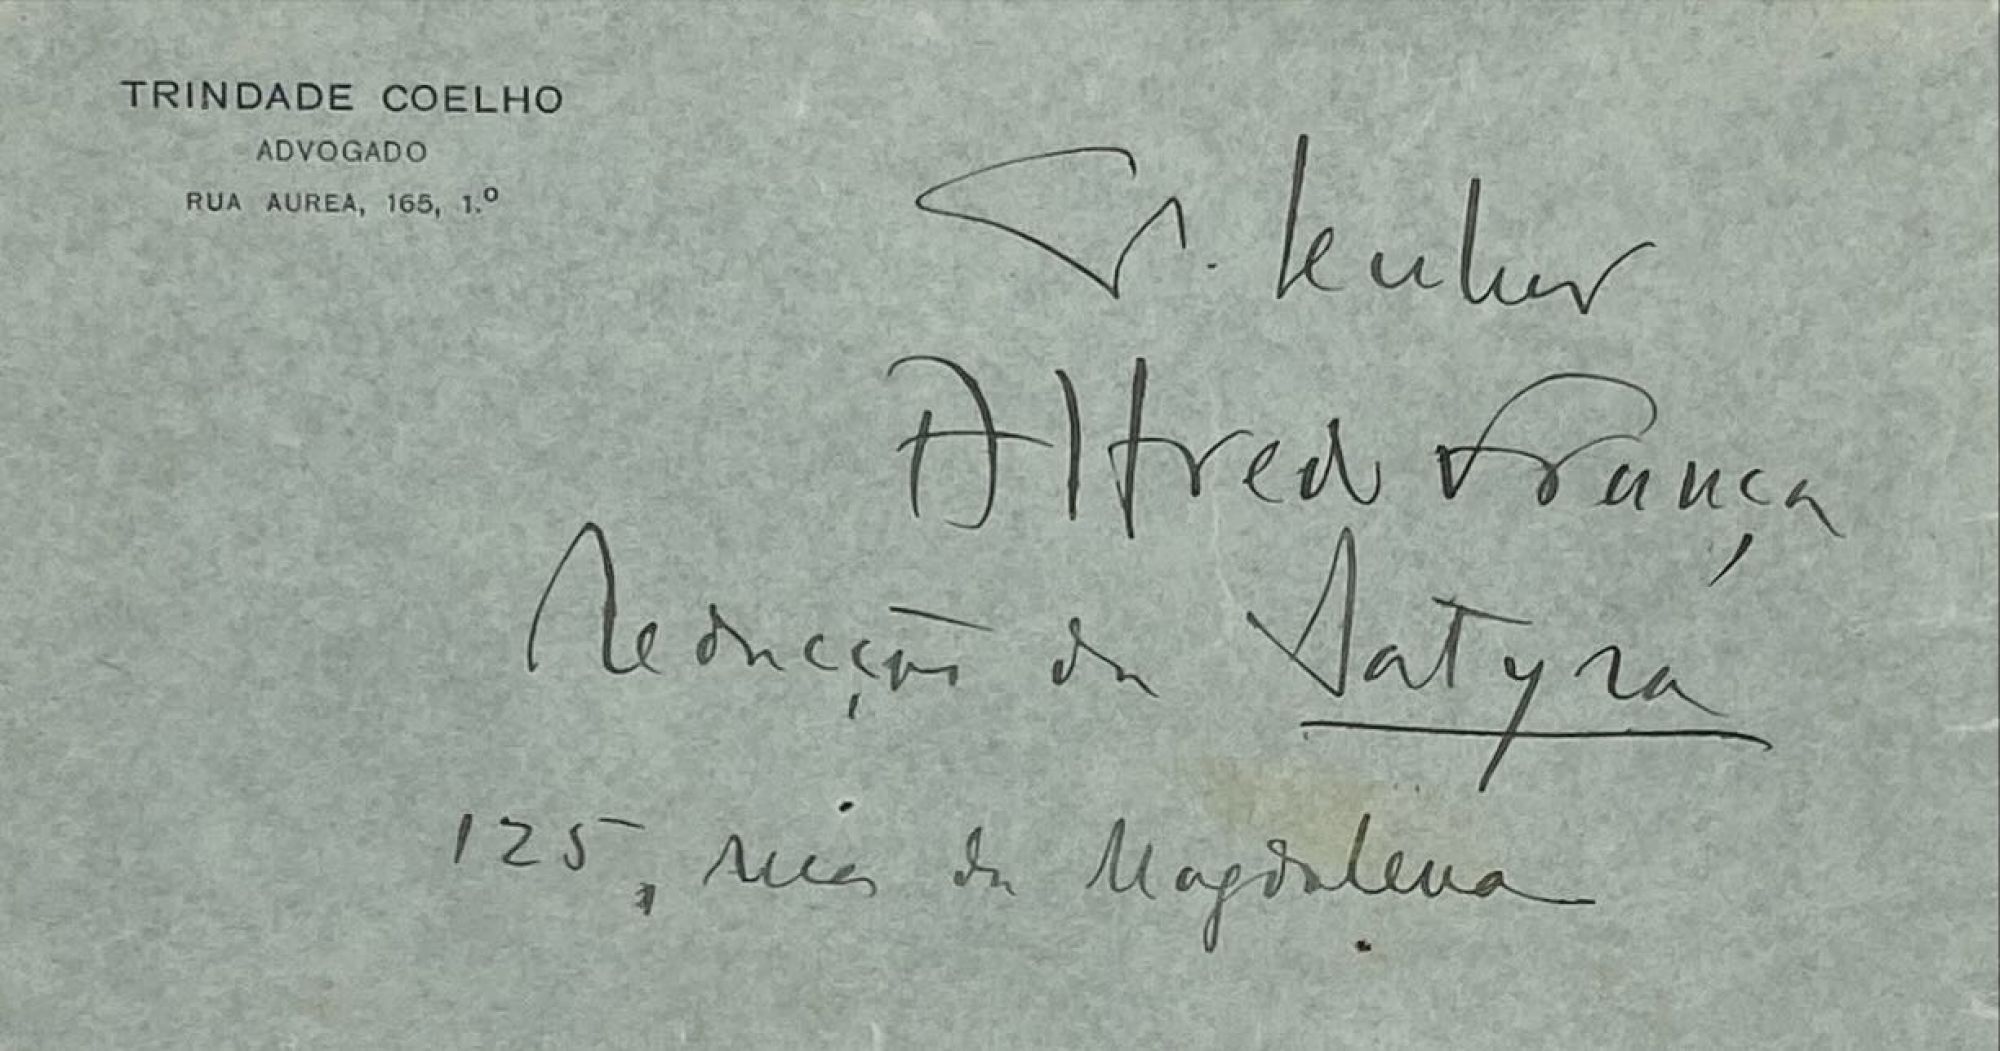 TRINDADE COELHO
ADVOGADO
RUA AUREA, 165, 1.º
Senhor
Alfredo França
Redacção da Satyra
125, rua da Magdalena